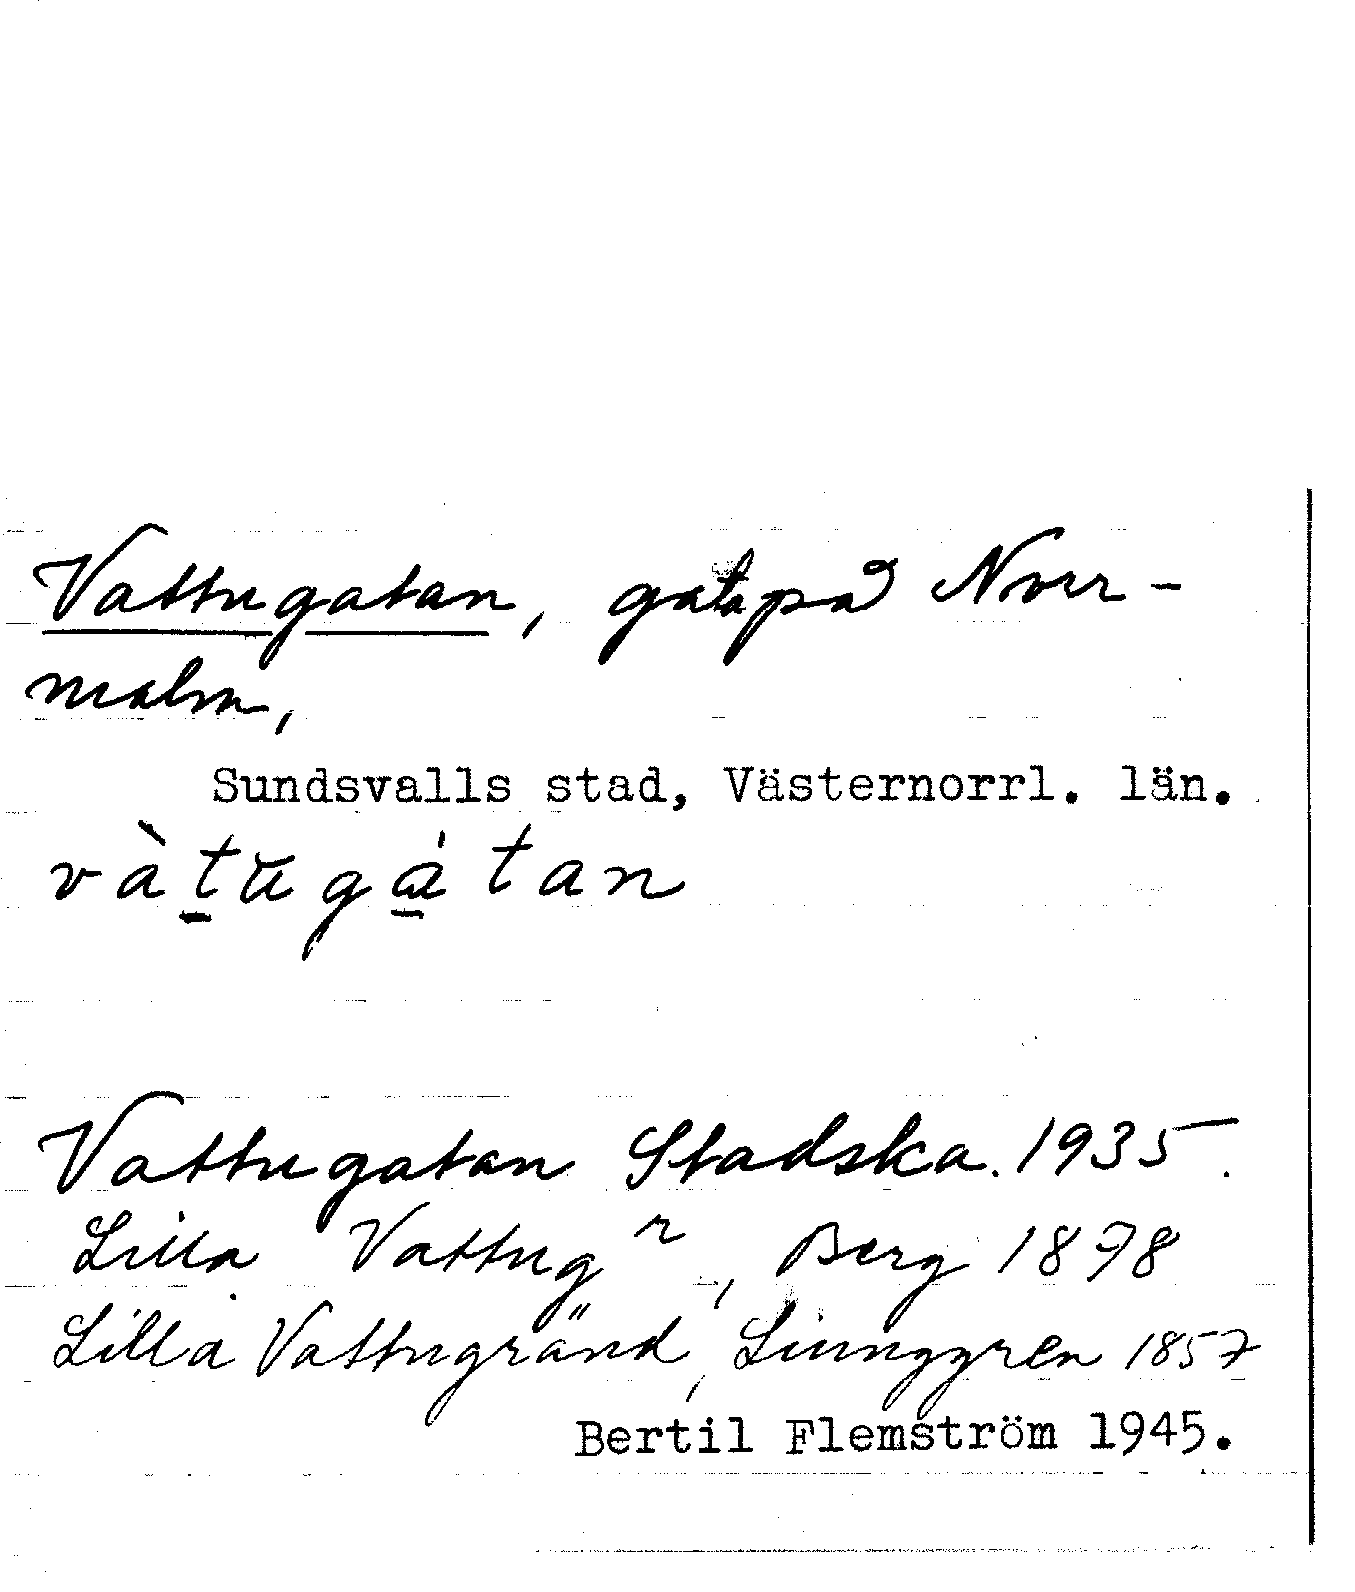 Vattugatan, gata på Norr-
malm,
Sundsvalls stad, Västernorrl. län.
vàtŭgátan
Vattugatan Stadska. 1935.
Lilla Vattugn, Berg 1878
Lilla Vattugränd, Ljunggren 1857
Bertil Flemström 1945.